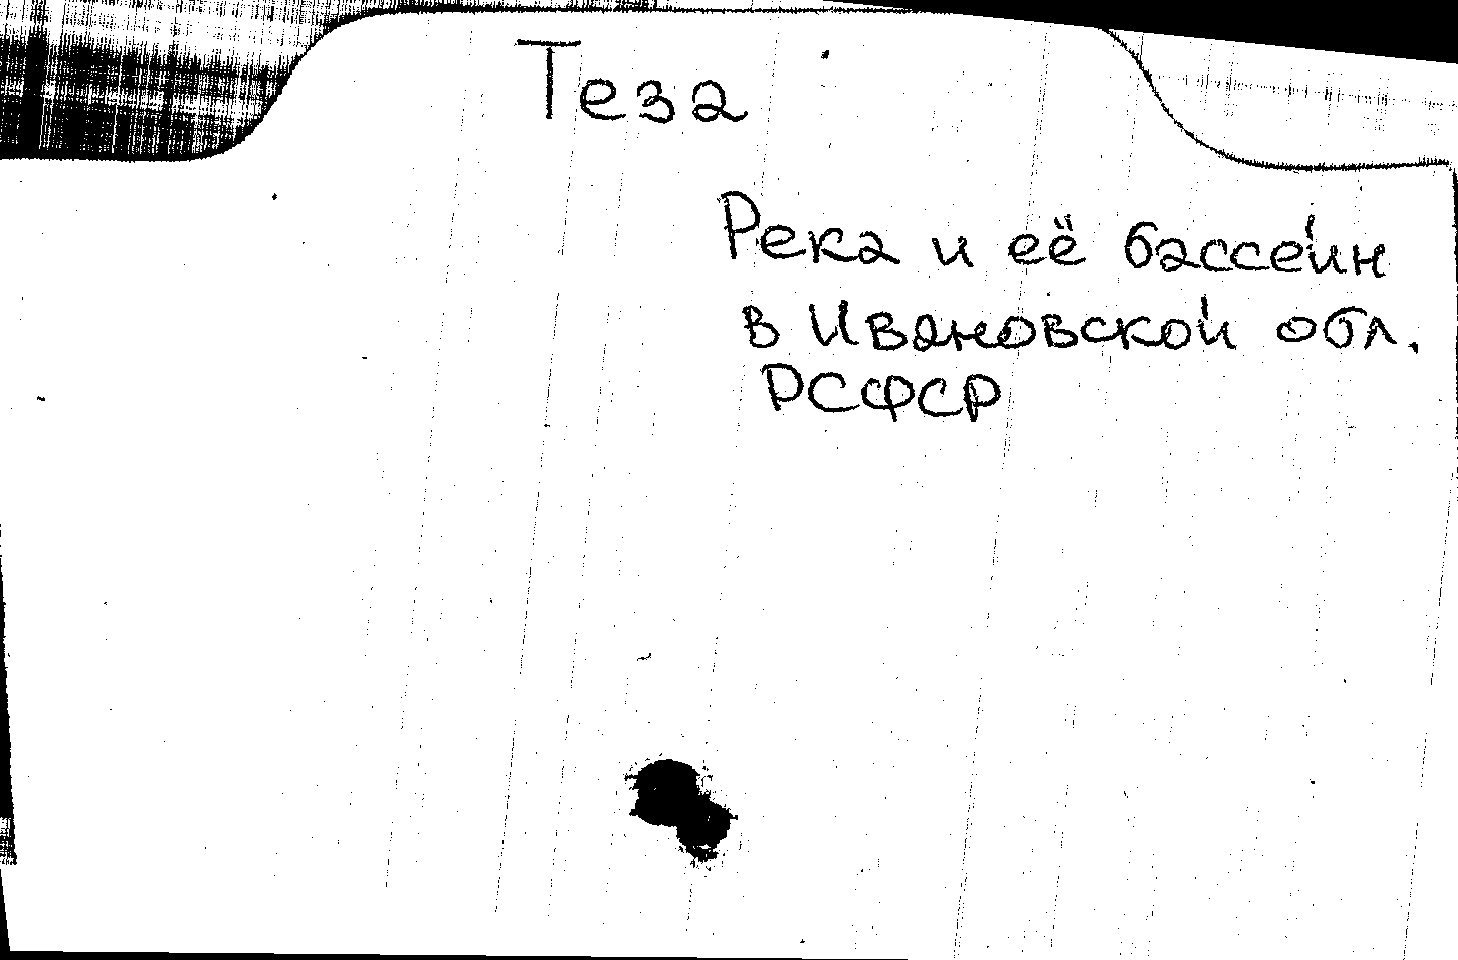 Теза
Река и её бассейн
в Ивановской обл.
РСФСР